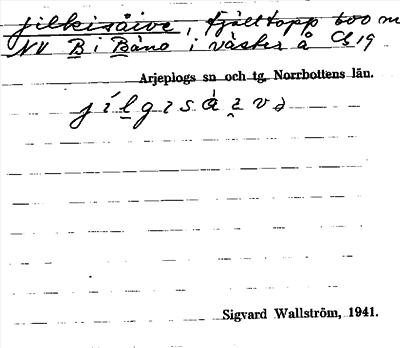 jilkisåive, fjälltopp 600 m
NV B i Båno i väster å Cb 19
Arjeplogs sn och tg, Norrbottens län.
jílgɪsá̭ɪvə
Sigvard Wallström, 1941.